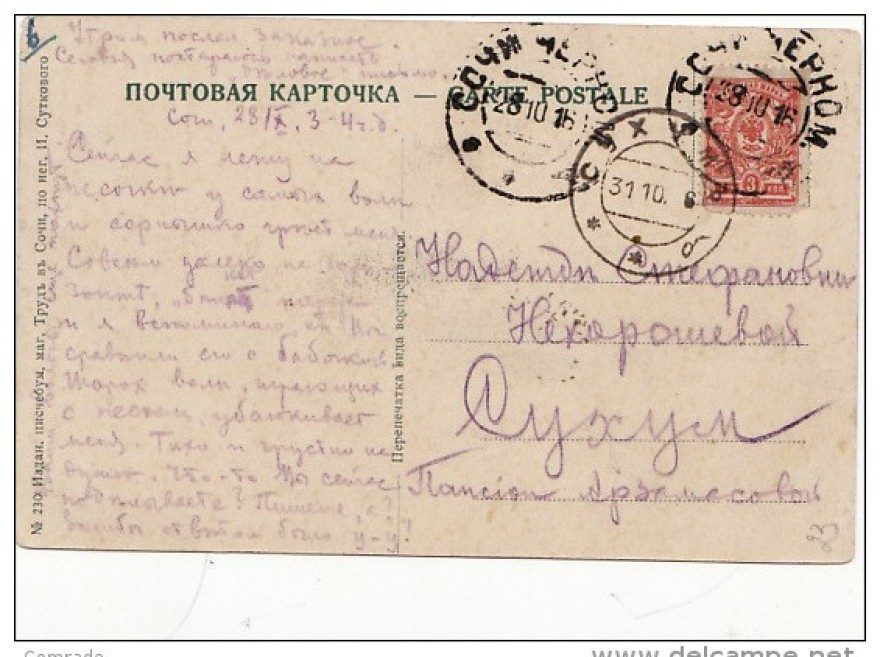 6
Утром послал заказное.
письмо.
ПОЧТОВАЯ КАРТОЧКА — CARTE POSTALE
Сочи, 28/X, 3-4 ч. д.
Сейчас я лежу на
песочке у самых волн
и солнышко греет меня.
Совсем далеко
и я вспоминаю, как Вы
сравнили его с бабочкой.
Шорох волн, играющих
с песком, убаюкивает
меня. Тихо и грустно на
душе. Что-то Вы сейчас
поделываете? Пишете, а?
было у-у?
№ 230 Издан. писчебум. маг. Трудъ въ Сочи, по нег. И. Суткового
Перепечатка вида воспрещается.
СОЧИ ЧЕРНОМ.
28 10 16
СОЧИ ЧЕРНОМ.
28 10 16
31 10. 6
Надежде Стефановне
Нехорошевой
Сухум
Пансіон Арзамасовой
23
Comrade
www.delcampe.net